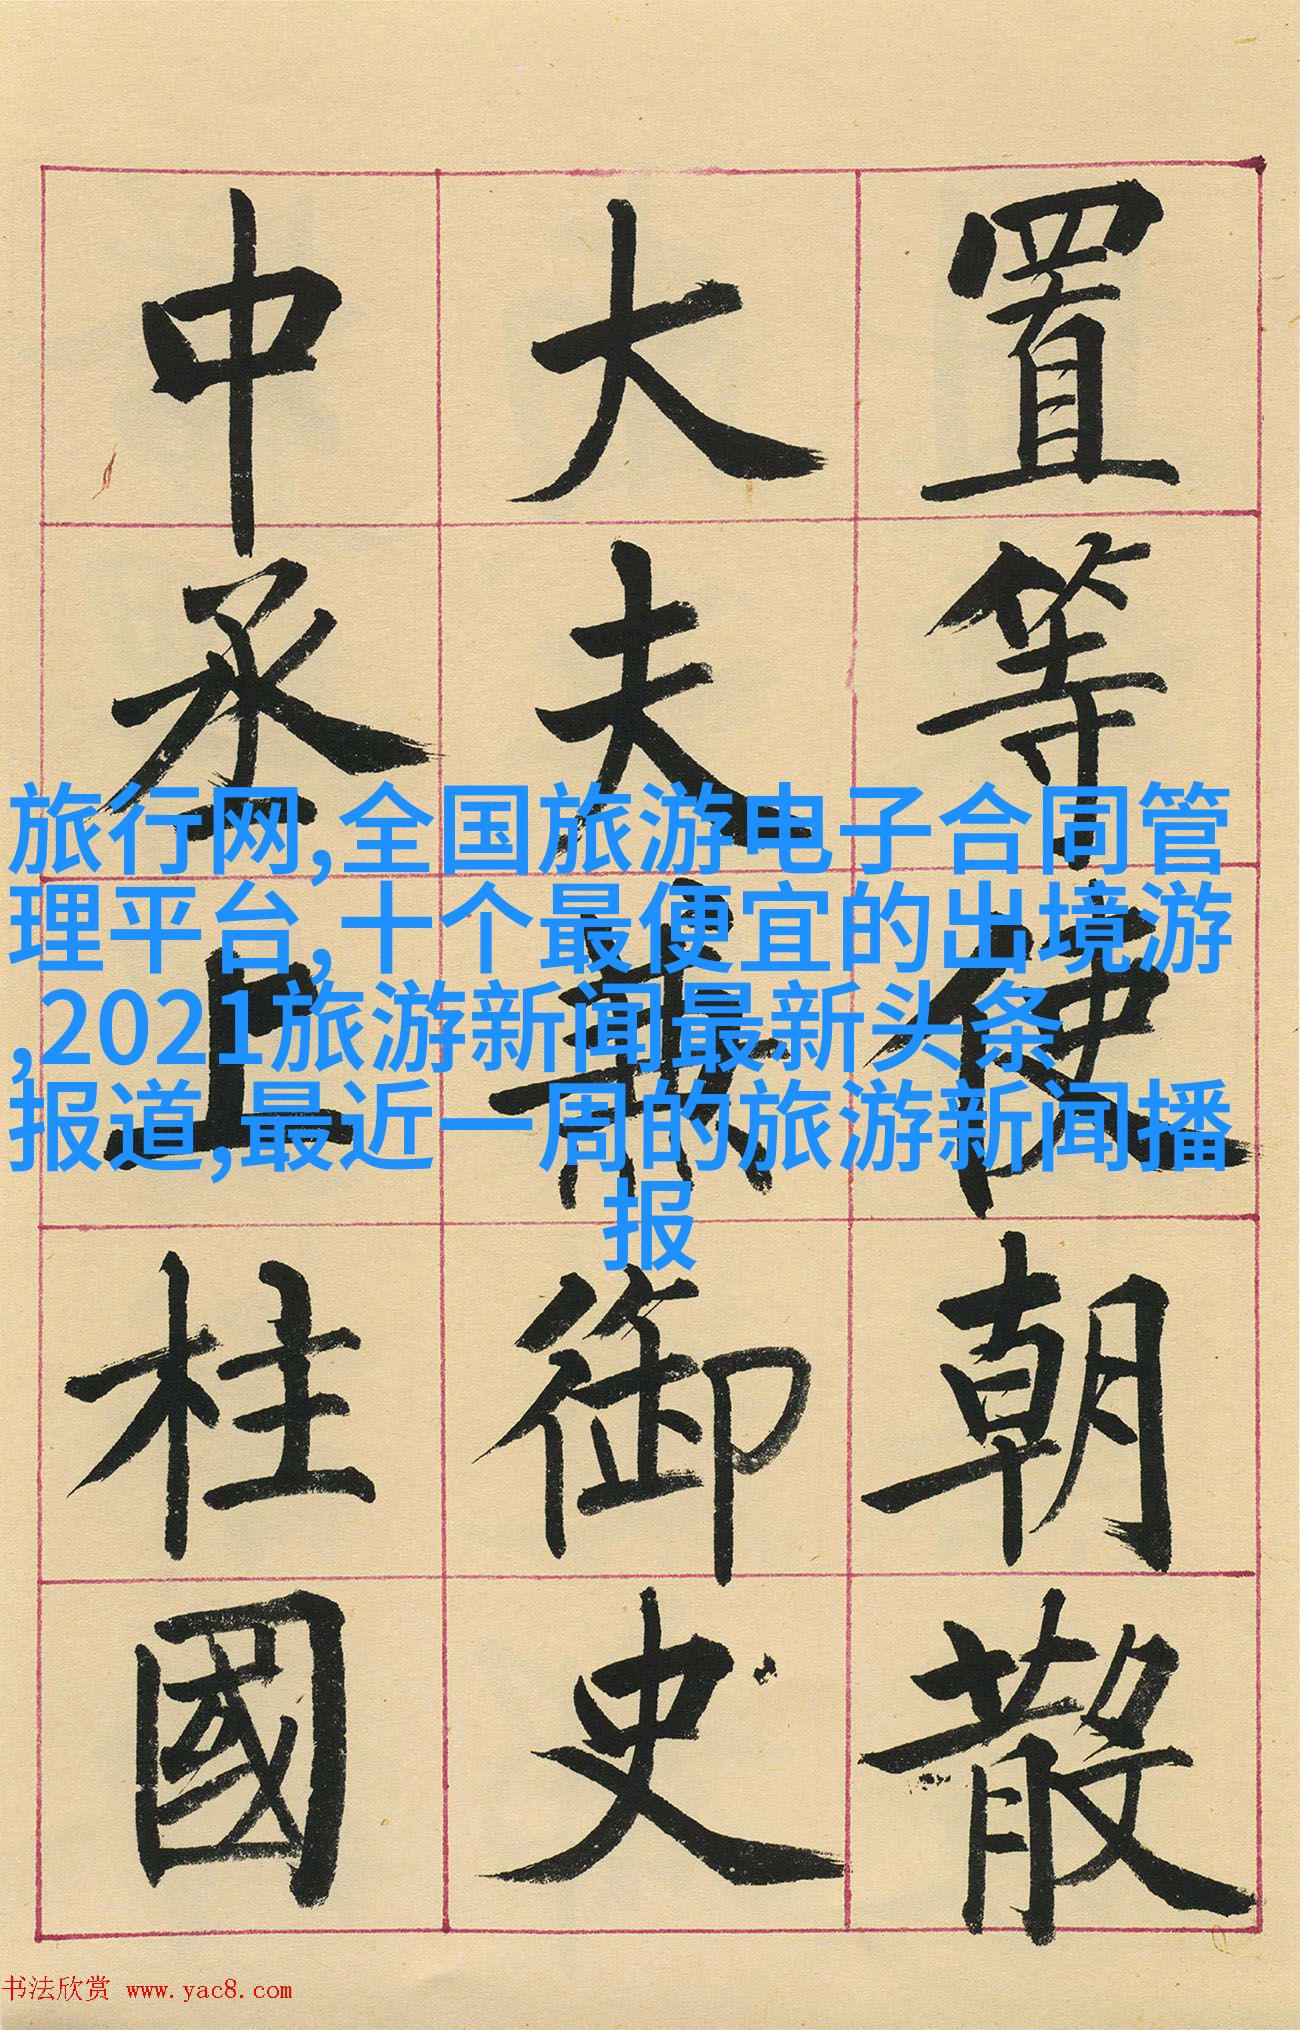 置等使朝散
大夫兼御史
中丞上柱國
旅行网,全国旅游电子合同管
理平台,十个最便宜的出境游
,2021旅游新闻最新头条
报道,最近一周的旅游新闻播
报
书法欣赏 www.yac8.com